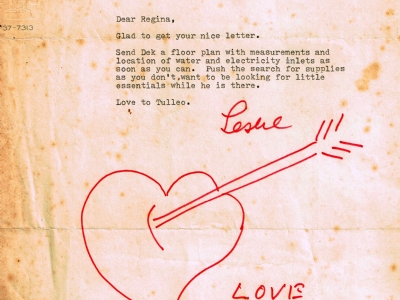 Dear Regina,
37-7313
Glad to get your nice letter.
Send Dek a floor plan with measurements and
location of water and electricity inlets as
soon as you can.  Push the search for supplies
as you don't,want to be looking for little
essentials while he is there.
Love to Tulleo.
Leslie
LOVE